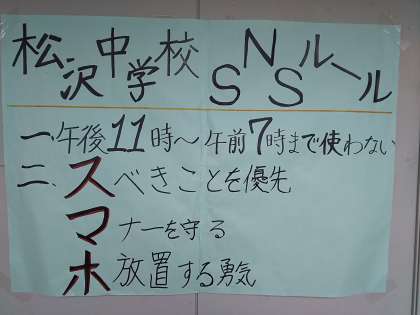 松沢中学校 SNSルール
一、午後11時〜午前7時まで使わない
二、スべきことを優先
マナーを守る
ホ放置する勇気